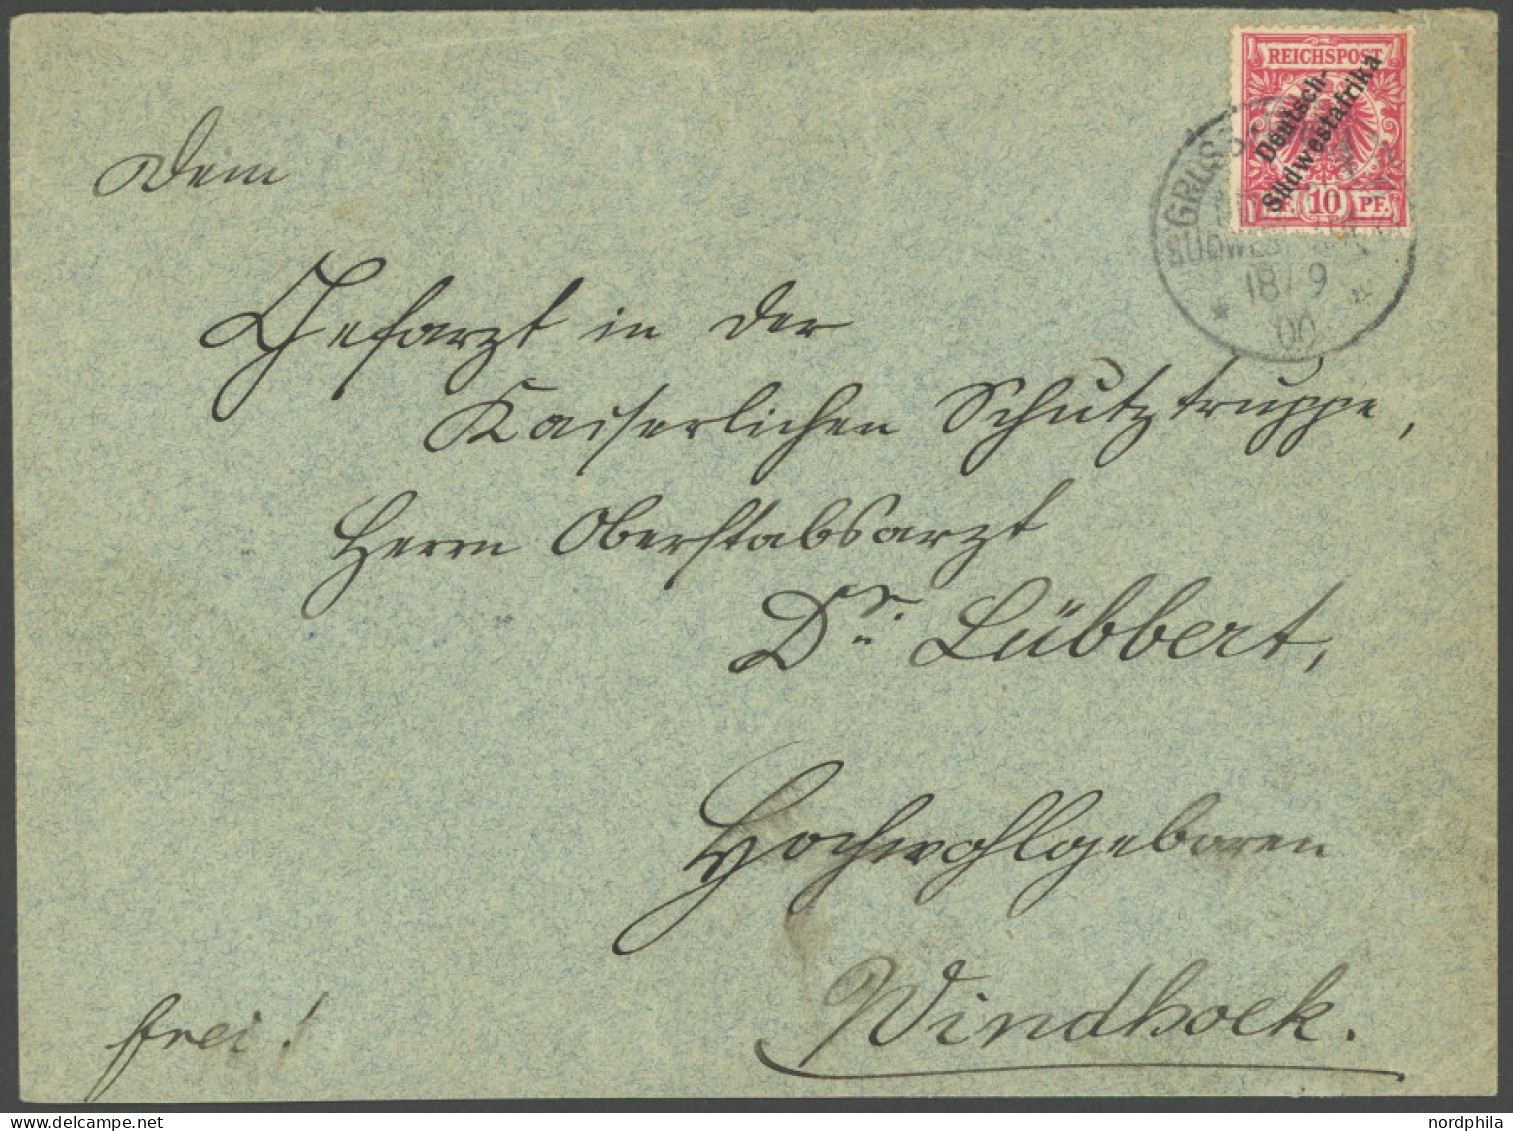 REICHSPOST
Deutsch-
Südwestafrika
10 PF.
SÜDWEST
18/9
00
Dem
Chefarzt in der
Kaiserlichen Schutztruppe,
Herrn Oberstabsarzt
Dr. Lübbert,
Hochwohlgeboren
Windhoek.
frei!
nordphila